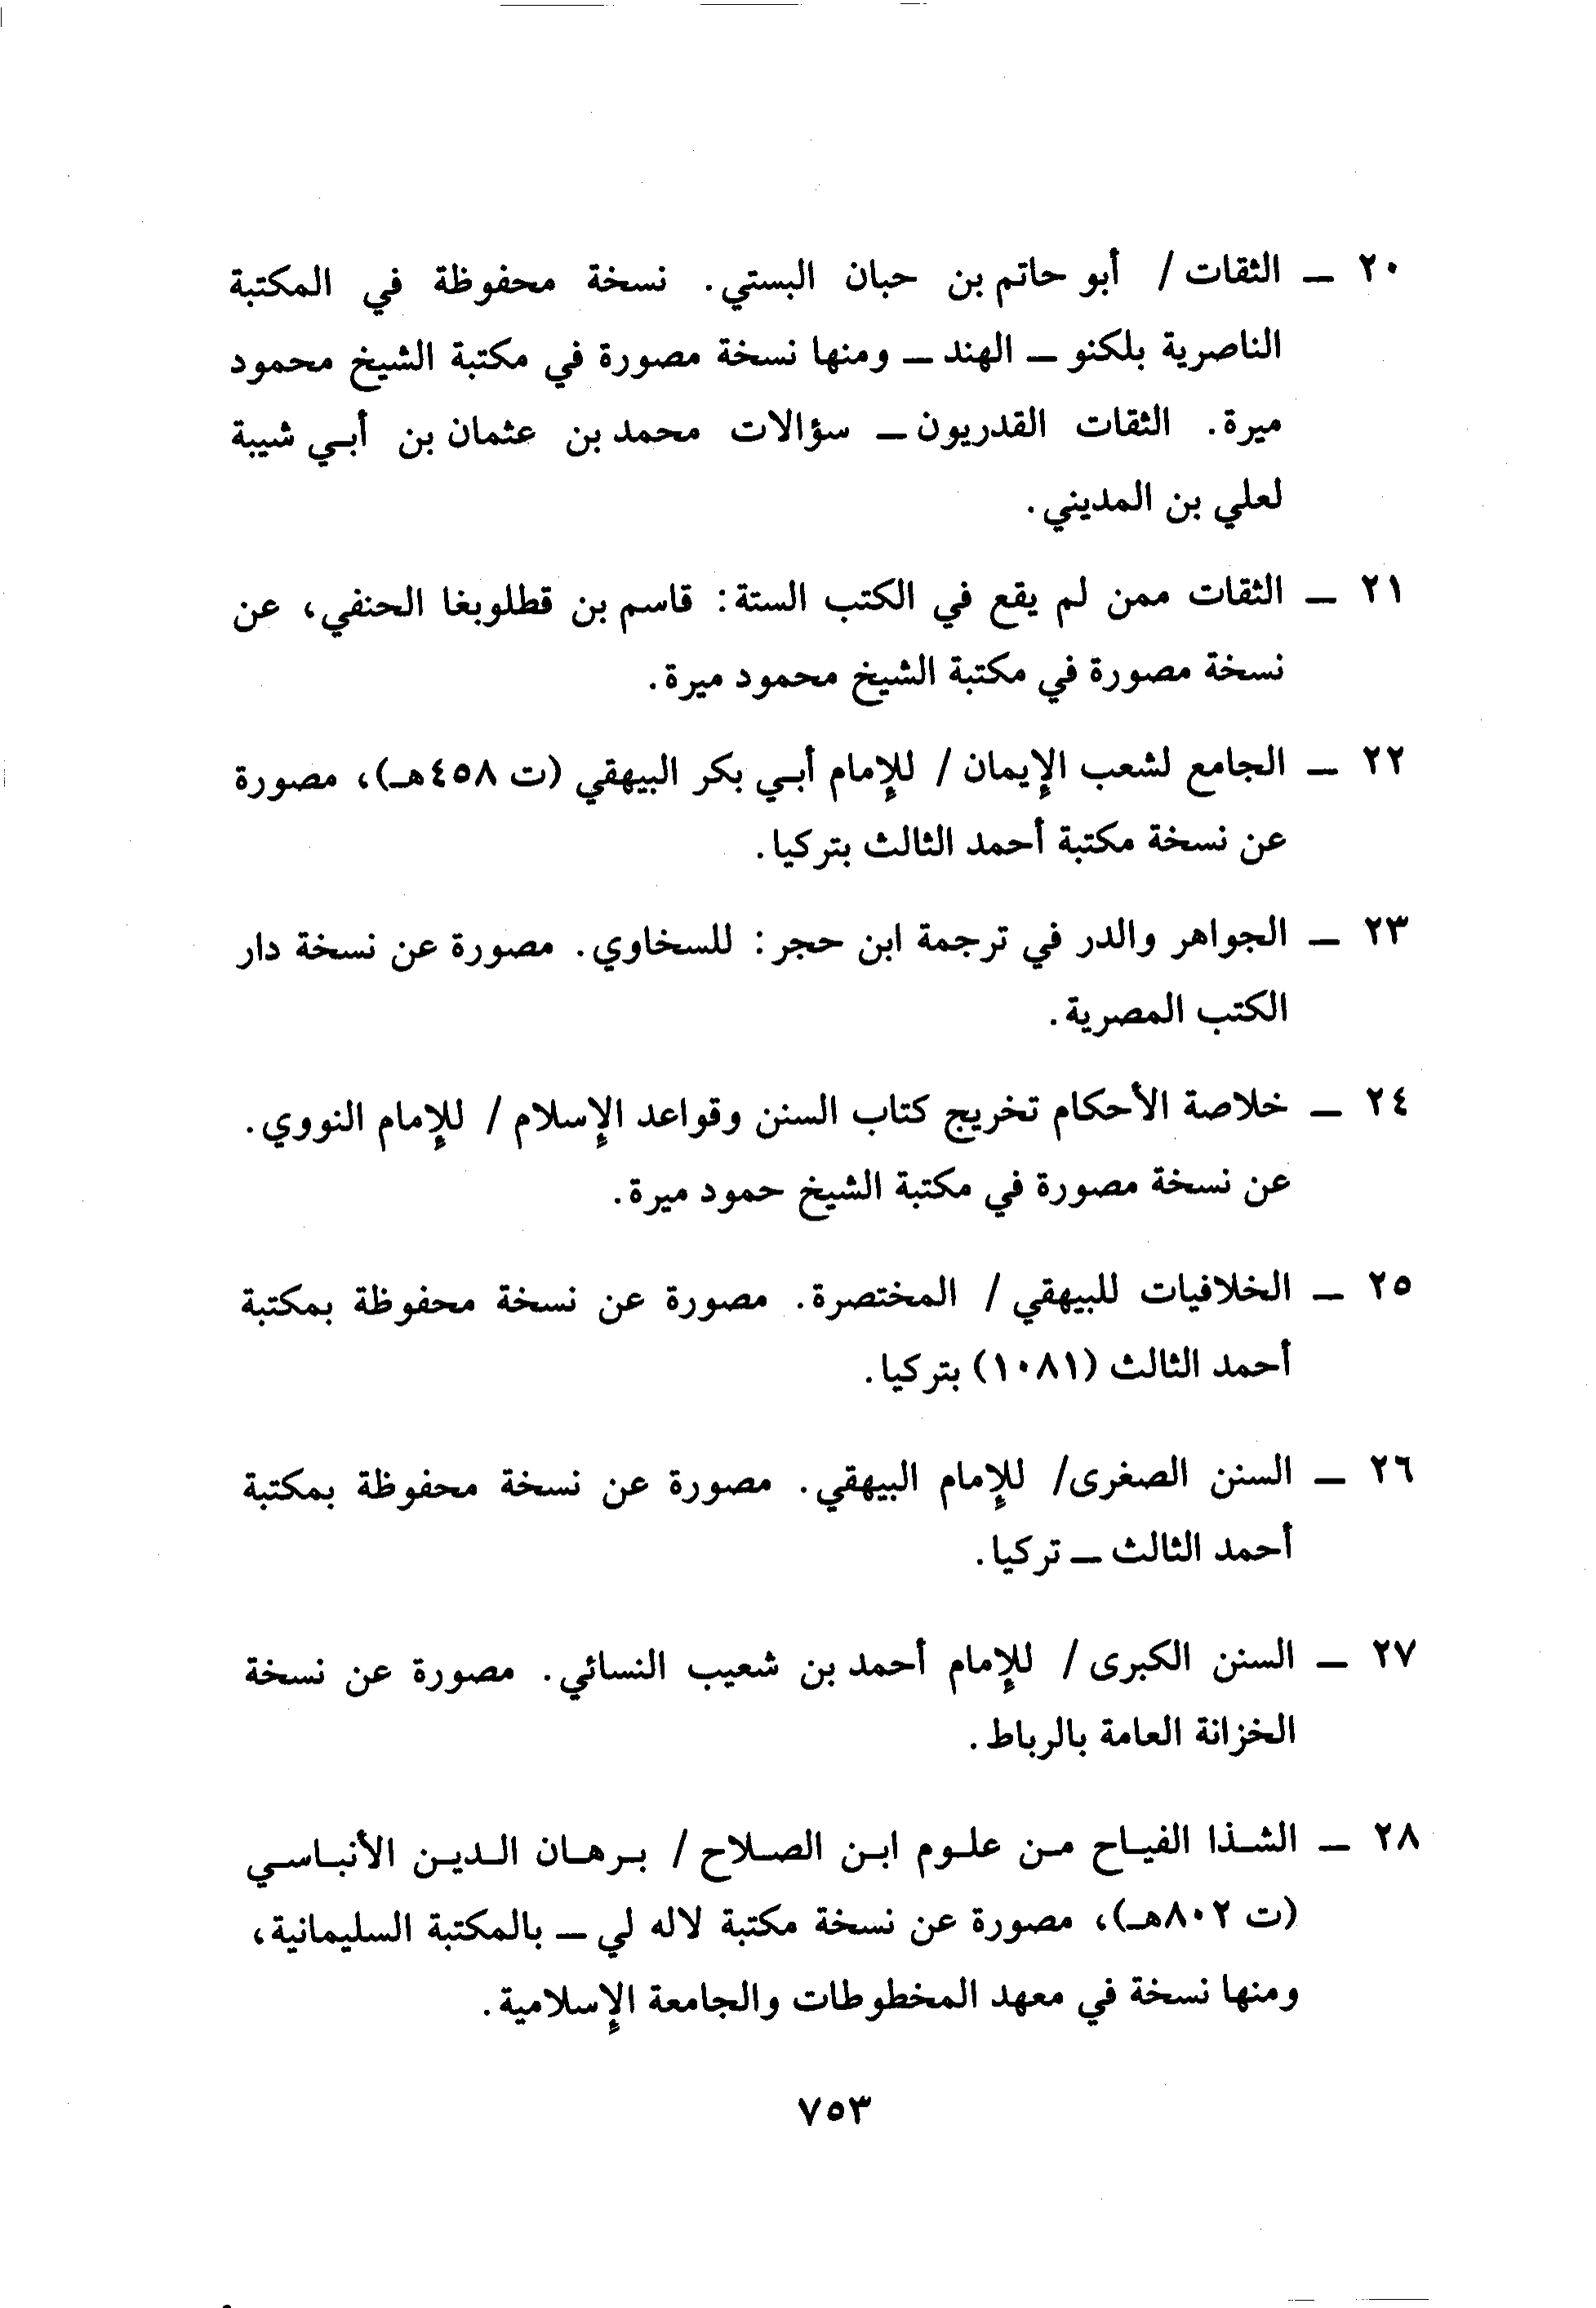 ٢٠ ــ الثقات / أبو حاتم بن حبان البستي. نسخة محفوظة في المكتبة
الناصرية بلكنو ــ الهند ــ ومنها نسخة مصورة في مكتبة الشيخ محمود
ميرة. الثقات القدريون ــ سؤالات محمد بن عثمان بن أبـي شيبة
لعلي بن المديني.
٢١ ــ الثقات ممن لم يقع في الكتب الستة: قاسم بن قطلوبغا الحنفي، عن
نسخة مصورة في مكتبة الشيخ محمود ميرة.
٢٢ ــ الجامع لشعب الإيمان / للإمام أبـي بكر البيهقي (ت ٤٥٨هـ)، مصورة
عن نسخة مكتبة أحمد الثالث بتركيا.
٢٣ ــ الجواهر والدر في ترجمة ابن حجر: للسخاوي. مصورة عن نسخة دار
الكتب المصرية.
٢٤ ــ خلاصة الأحكام تخريج كتاب السنن وقواعد الإسلام / للإمام النووي.
عن نسخة مصورة في مكتبة الشيخ حمود ميرة.
٢٥ ــ الخلافيات للبيهقي / المختصرة. مصورة عن نسخة محفوظة بمكتبة
أحمد الثالث (١٠٨١) بتركيا.
٢٦ ــ السنن الصغرى/ للإمام البيهقي. مصورة عن نسخة محفوظة بمكتبة
أحمد الثالث ــ تركيا.
٢٧ ــ السنن الكبرى/ للإمام أحمد بن شعيب النسائي. مصورة عن نسخة
الخزانة العامة بالرباط.
٢٨ ــ الشـذا الفيـاح مـن علـوم ابـن الصـلاح / بـرهـان الـديـن الأنبـاسـي
(ت ٨٠٢هـ)، مصورة عن نسخة مكتبة لاله لي ــ بالمكتبة السليمانية،
ومنها نسخة في معهد المخطوطات والجامعة الإسلامية.
٧٥٣